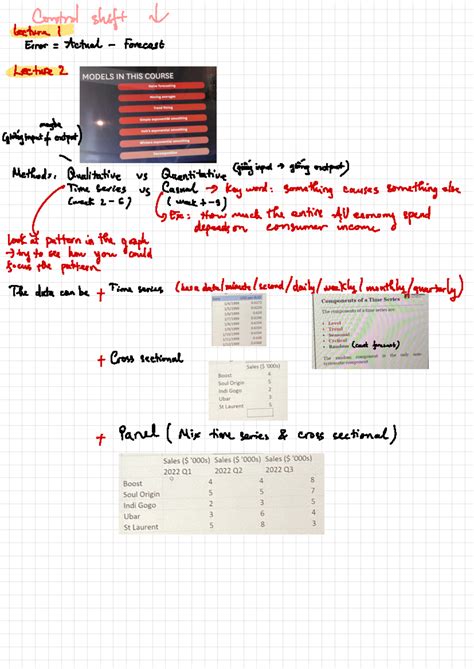 Control shift ↓
Lecture 1
Error = Actual - Forecast
Lecture 2
MODELS IN THIS COURSE
Naive forecasting
Moving averages
Trend fitting
Simple exponential smoothing
Holt's exponential smoothing
Winters exponential smoothing
maybe
(giving input & output)
Methods: Qualitative vs Quantitative (giving input → giving output)
Time series vs Casual → Key word: something causes something else
(week 2-6) (week 7-8)
Ex: How much the entire AU economy spend
depends on consumer income
Look at pattern in the graph
→ try to see how you could
focus the pattern
The data can be + Time series (has a date/minute/second/daily/weekly/monthly/quarterly)
Components of a Time Series
The components of a time series are:
• Level
• Trend
• Seasonal
• Cyclical
• Random (cant forecast)
The random component is the only non-
systematic component
+ Cross sectional
Sales ($ '000s)
Boost 4
Soul Origin 5
Indi Gogo 2
Ubar 3
St Laurent 5
+ Panel (Mix time series & cross sectional)
Sales ($ '000s) Sales ($ '000s) Sales ($ '000s)
2022 Q1 2022 Q2 2022 Q3
Boost 4 4 8
Soul Origin 5 5 7
Indi Gogo 2 3 5
Ubar 3 6 4
St Laurent 5 8 3